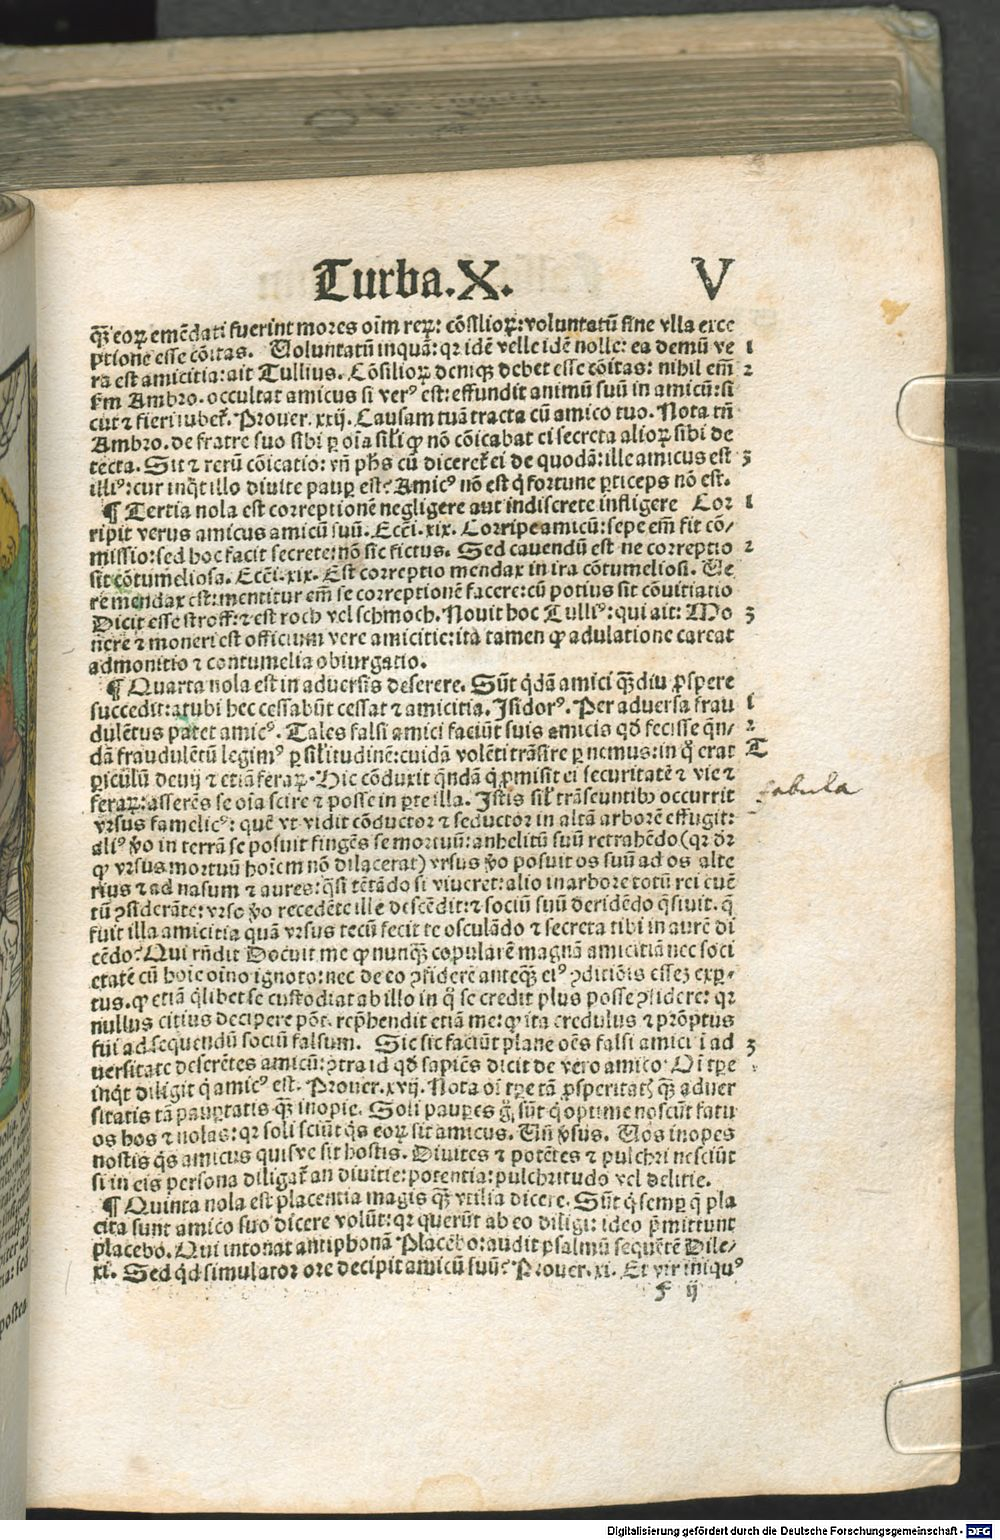 Turba.X. V
qꝫ eoꝝ emēdati fuerint mores oīm reꝝ: cōsilioꝝ: voluntatū sine vlla exce
ptione esse cōitas. Voluntatū inquā: qꝛ idē velle idē nolle: ea demū ve 1
ra est amicitia: ait Tullius. Cōsilioꝝ deniqꝫ debet esse cōitas: nihil em̄ 2
ẜm Ambro. occultat amicus si verꝰ est: effundit animū suū in amicū: si
cut ⁊ fieri iubet̄. Prouer. xxij. Causam tuā tracta cū amico tuo. Nota tn̄
Ambro. de fratre suo sibi ꝑ oīa sil'i ꝙ nō cōicabat ei secreta alioꝝ sibi de
tecta. Sit ⁊ rerū cōicatio: vn̄ ph̄s cū diceret̄ ei de quodā: ille amicus est 3
illiꝰ: cur inq̄t illo diuite pauꝑ est? Amicꝰ nō est q̇ fortune ꝑticeps nō est.
¶ Tertia nola est correptionē negligere aut indiscrete infligere Cor 1
ripit verus amicus amicū suū. Ecc̄i. xix. Corripe amicū: sepe em̄ fit cō/
missio: sed hoc facit secrete: nō sic fictus. Sed cauendū est ne correptio 2
sit cōtumeliosa. Ecc̄i. xix. Est correptio mendax in ira cōtumeliosi. Ve
re mendax est: mentitur em̄ se correptionē facere: cū potius sit cōuitiatio
Dicit esse stroff: ⁊ est roch vel schmoch. Nouit hoc Tulliꝰ: qui ait: Mo 3
nere ⁊ moneri est officium vere amicitie: ita tamen ꝙ adulatione careat
admonitio ⁊ contumelia obiurgatio.
¶ Quarta nola est in aduersis deserere. Sūt q̇dā amici qꝫdiu ꝓspere
succedit: at vbi hec cessabūt cessat ⁊ amicitia. Isidorꝰ. Per aduersa frau 1
dulētus patet amicꝰ. Tales falsi amici faciūt suis amicis qd̄ fecisse q̄n/ 2
dā fraudulētū legimꝰ ꝑ sil'itudinē: cuidā volēti trāsire ꝑ nemus: in q̊ erat T
ꝑiculū deuij ⁊ etiā feraꝝ. Hic cōduxit q̄ndā q̇ ꝓmisit ei securitatē ⁊ vie ⁊
feraꝝ: asserēs se oīa scire ⁊ posse in ꝑte illa. Istis sil' trāseuntibꝰ occurrit fabula
vrsus famelicꝰ: quē vt vidit cōductor ⁊ seductor in altā arborē effugit:
aliꝰ ꝟo in terrā se posuit fingēs se mortuū: anhelitū suū retrahēdo (qꝛ dr̄
ꝙ vrsus mortuū hoīem nō dilacerat) vrsus ꝟo posuit os suū ad os alte
rius ⁊ ad nasum ⁊ aures: q̄si tētādo si viueret: alio in arbore totū rei euē
tū ꝯsiderāte: vrso ꝟo recedēte ille descēdit: ⁊ sociū suū deridēdo q̄siuit. q̄
fuit illa amicitia quā vrsus tecū fecit te osculādo ⁊ secreta tibi in aurē di
cēdo? Qui rn̄dit Docuit me ꝙ nunqꝫ copularē magnā amicitiā nec soci
etatē cū hoīe oīno ignoto: nec de eo ꝯfiderē anteqꝫ eiꝰ ꝯditiōis essez exꝑ/
tus. ꝙ etiā q̇libet se custodiat ab illo in q̊ se credit plus posse ꝯfidere: qꝛ
nullus citius decipere pōt. rep̄hendit etiā me: ꝙ ita credulus ⁊ prōptus
fui ad sequendū sociū falsum. Sic sic faciūt plane oēs falsi amici ī ad 3
uersitate deserētes amicū: ꝯtra id qd̄ sapiēs dicit de vero amico. Oī tꝑe
inq̄t diligit q̇ amicꝰ est. Prouer. xvij. Nota oī tꝑe tā ꝓsperitatꝭ qꝫ aduer
sitatis tā pauꝑtatis qꝫ inopie. Soli pauꝑes g̊ sūt q̇ optime noscūt fatu
os hos ⁊ nolas: qꝛ soli sciūt q̇s eoꝝ sit amicus. Vn̄ ꝟsus. Vos inopes
nostis q̇s amicus quisve sit hostis. Diuites ⁊ potētes ⁊ pulchri nesciūt
si in eis persona diligat̄ an diuitie: potentia: pulchritudo vel delitie.
¶ Quinta nola est placentia magis qꝫ vtilia dicere. Sūt q̇ semꝑ q̄ pla
cita sunt amico suo dicere volūt: qꝛ querūt ab eo diligi: ideo p̄mittunt
placebo. Qui intonat antiphonā Placebo: audit psalmū sequētē Dile/
xi. Sed q̇d simulator ore decipit amicū suū? Prouer. xi. Et vir iniquꝰ
f ij